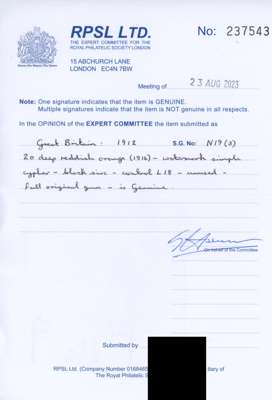 RPSL LTD.
THE EXPERT COMMITTEE FOR THE
ROYAL PHILATELIC SOCIETY LONDON
No: 237543
15 ABCHURCH LANE
LONDON EC4N 7BW
Meeting of 23 AUG 2023
Note: One signature indicates that the item is GENUINE.
Multiple signatures indicate that the item is NOT genuine in all respects.
In the OPINION of the EXPERT COMMITTEE the item submitted as
Great Britain : 1912 S.G. No: N19(3)
2d deep reddish orange (1916) - watermark simple
cypher - block six - control L18 - unused -
full original gum - is Genuine.
On behalf of the Committee
Submitted by
RPSL Ltd. (Company Number
The Royal Philatelic